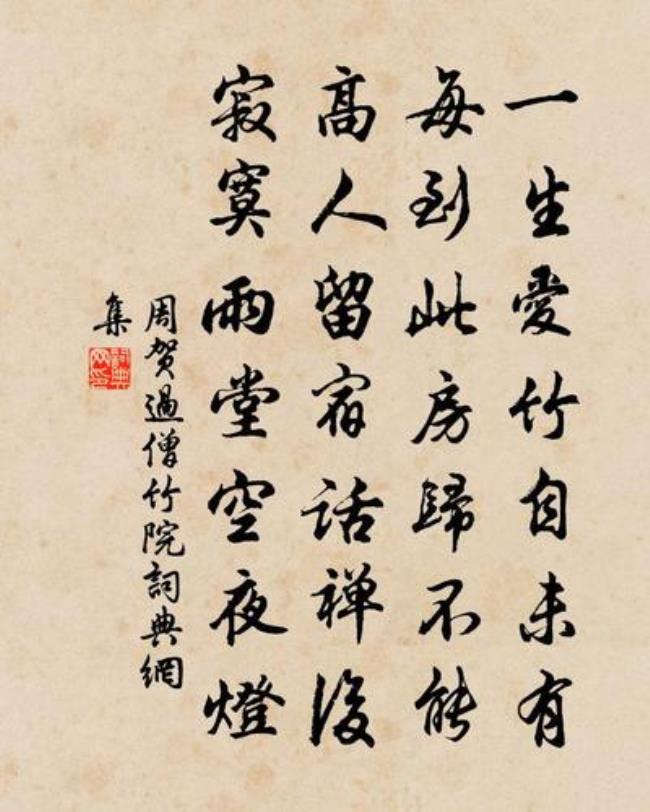 一生愛竹自未有
每到此房歸不能
高人留宿話禅後
寂寞雨堂空夜燈
周賀過僧竹院詞典網
集